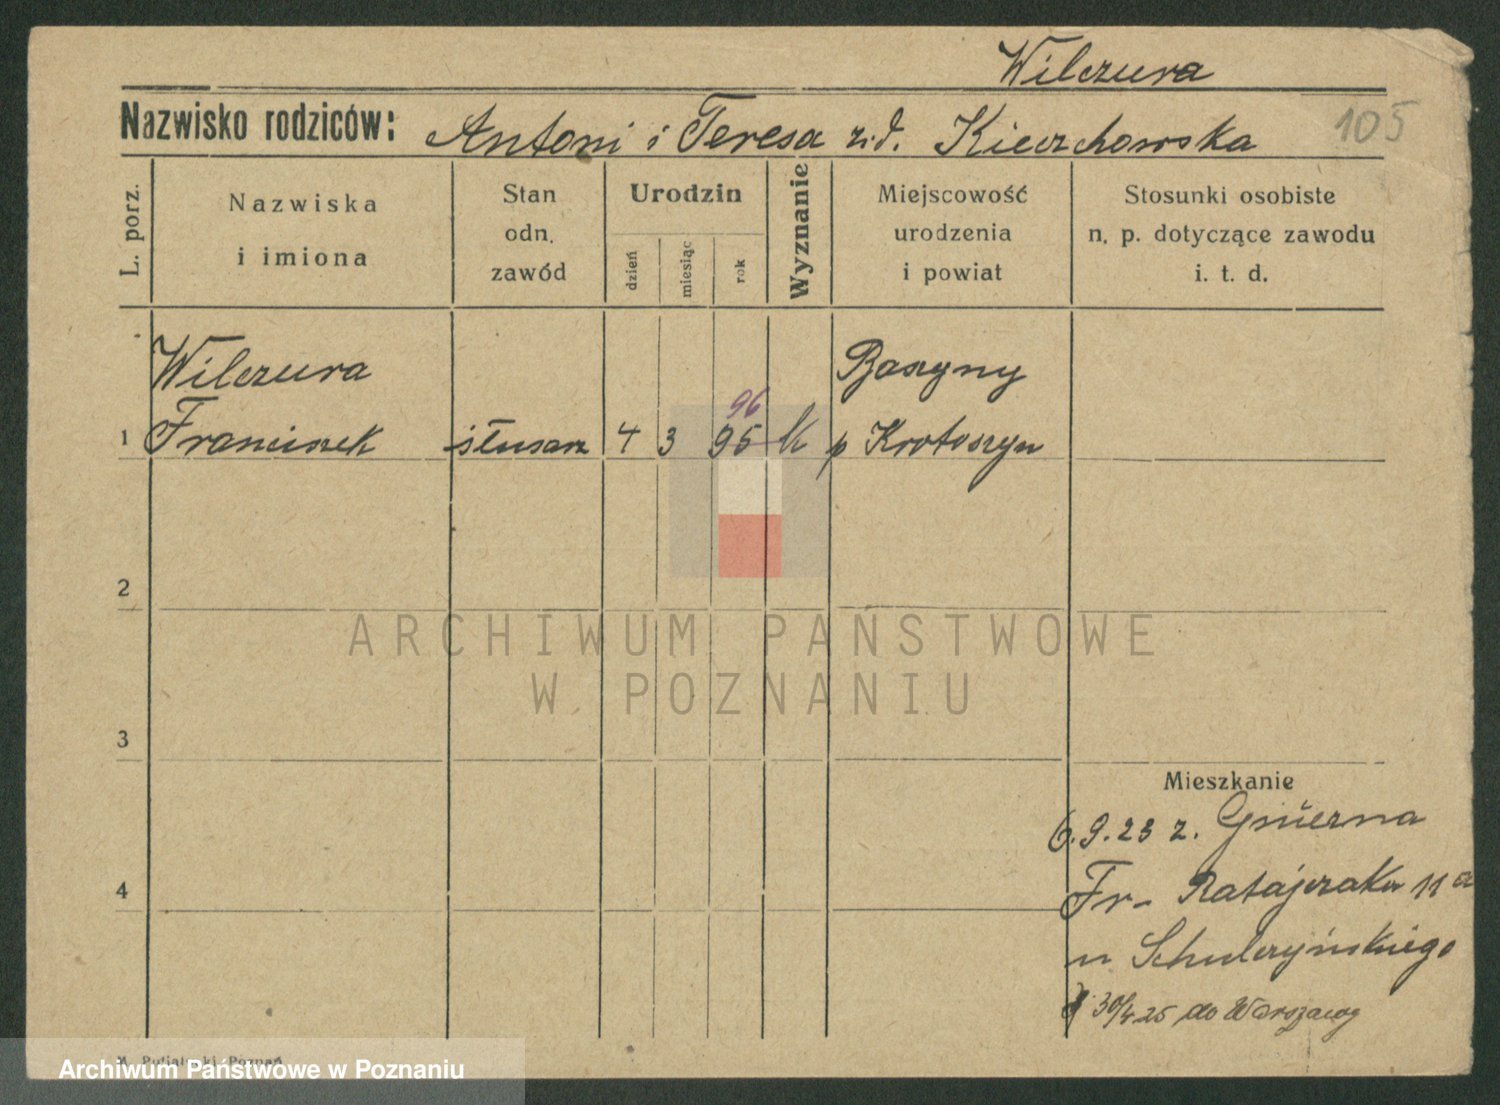 Wilczura
Nazwisko rodziców: Antoni i Teresa z.d. Kierzchowska
105
L. porz.
Nazwiska
i imiona
Stan
odn.
zawód
Urodzin
dzień
miesiąc
rok
Wyznanie
Miejscowość
urodzenia
i powiat
Stosunki osobiste
n. p. dotyczące zawodu
i. t. d.
Wilczura
Baszyny
96
1 Franciszek ślusarz 4 3 95 k p Krotoszyn
2
ARCHIWUM PAŃSTWOWE
W POZNANIU
3
Mieszkanie
6.9.23 z. Gniezna
4
Fr. Ratajczaka 11a
u Schulczyńskiego
30/4 25 do Warszawy
Archiwum Państwowe w Poznaniu